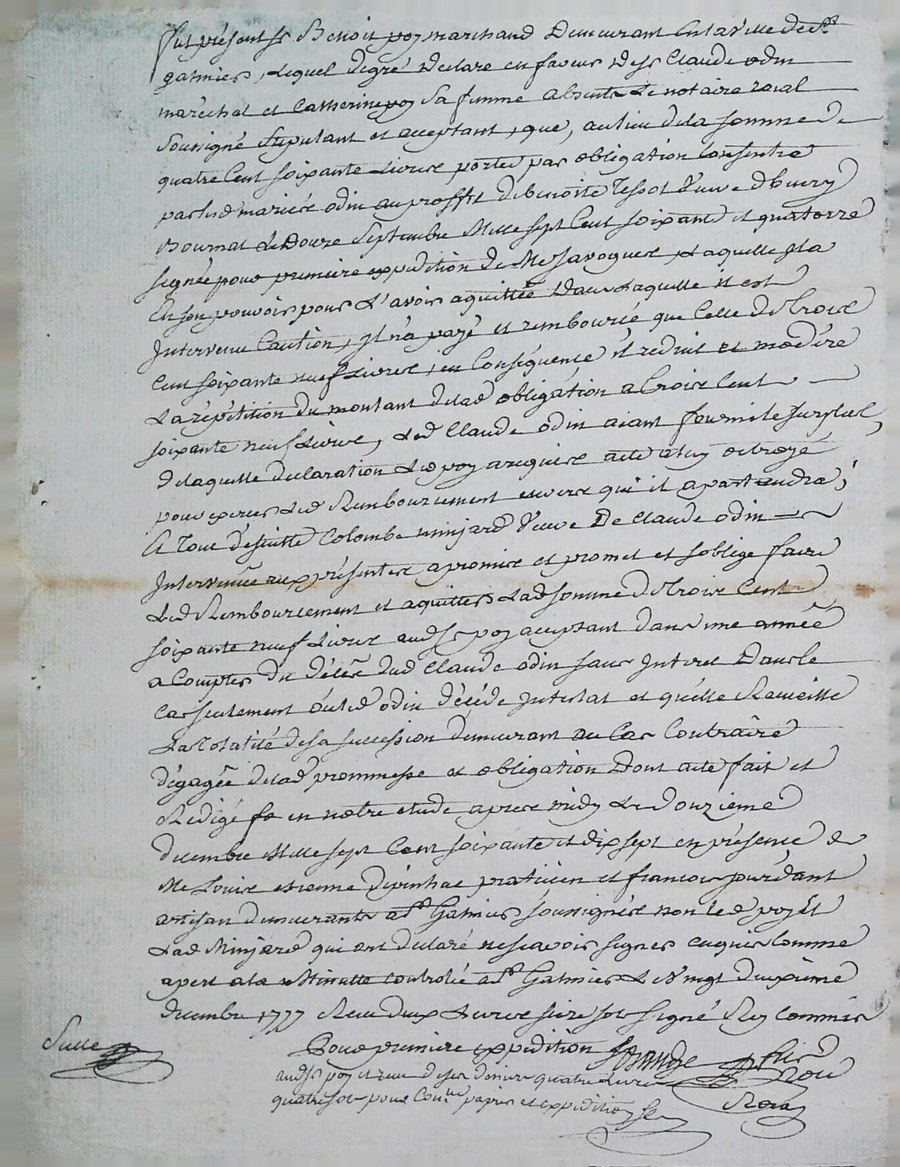 fut présent sr Benoit poy marchand Demeurant en la ville de st
galmier, Lequel degré declare en faveur de sr Claude odin
maréchal et Catherine poy sa femme absents Le notaire roial
soussigné stipulant et acceptant, que, au lieu de la somme de
quatre Cent soixante Livres portée par obligation Consentie
par lesd mariés odin au proffit de benoite Tessot veuve d'huery
Bournat Le Douze septembre Mille sept Cent soixante et quatorze
signée pour premiere expedition de Me Javogues, Laquelle il a
En son pouvoir pour L'avoir aquittée Dans Laquelle il est
Intervenu Caution, Jl n'a payé et remboursé que Celle de Trois
Cent soixante neuf Livres, en Conséquence il reduit et modére
La répétition du montant de lad obligation a Trois Cent
soixante neuf Livres, Led Claude odin aiant fourni le surplus,
de laquelle declaration Led poy a requis acte a luy octroyé
pour exiger Led Remboursement envers qui il apartiendra;
Et Tout de suitte Colombe minjard veuve De Claude odin
Intervenüe aux présentes a promis et promet et s'oblige faire
Led Remboursement et aquitter Lad somme de Trois Cent
soixante neuf Livres aud sr poy aceptant dans une année
a Compter du décés dud Claude odin sans Interet Dans le
Cas seulement où led odin décéde Intestat et qu'elle Recueille
La Totalité de sa succession demeurant au Cas Contraire
dégagée de lad prommesse et obligation Dont acte fait et
Rédigé en notre etude apres midy Le Douzieme
decembre Mille sept Cent soixante et dix sept en présence de
Me Louis etienne depinhac praticien et francois jourdant
artisan demeurants a st Galmier soussignés non led poy et
Lad Minjard qui ont declaré ne scavoir signer enquis Comme
apert a la Minutte controlé a st Galmier Le vingt deuxième
decembre 1777 Receu deux Livres seize sols signé Rey Commis
Pour premiere expedition
aud sr poy et receu de ses deniers quatre Livres
quatre sols pour Conlle papier et expedition